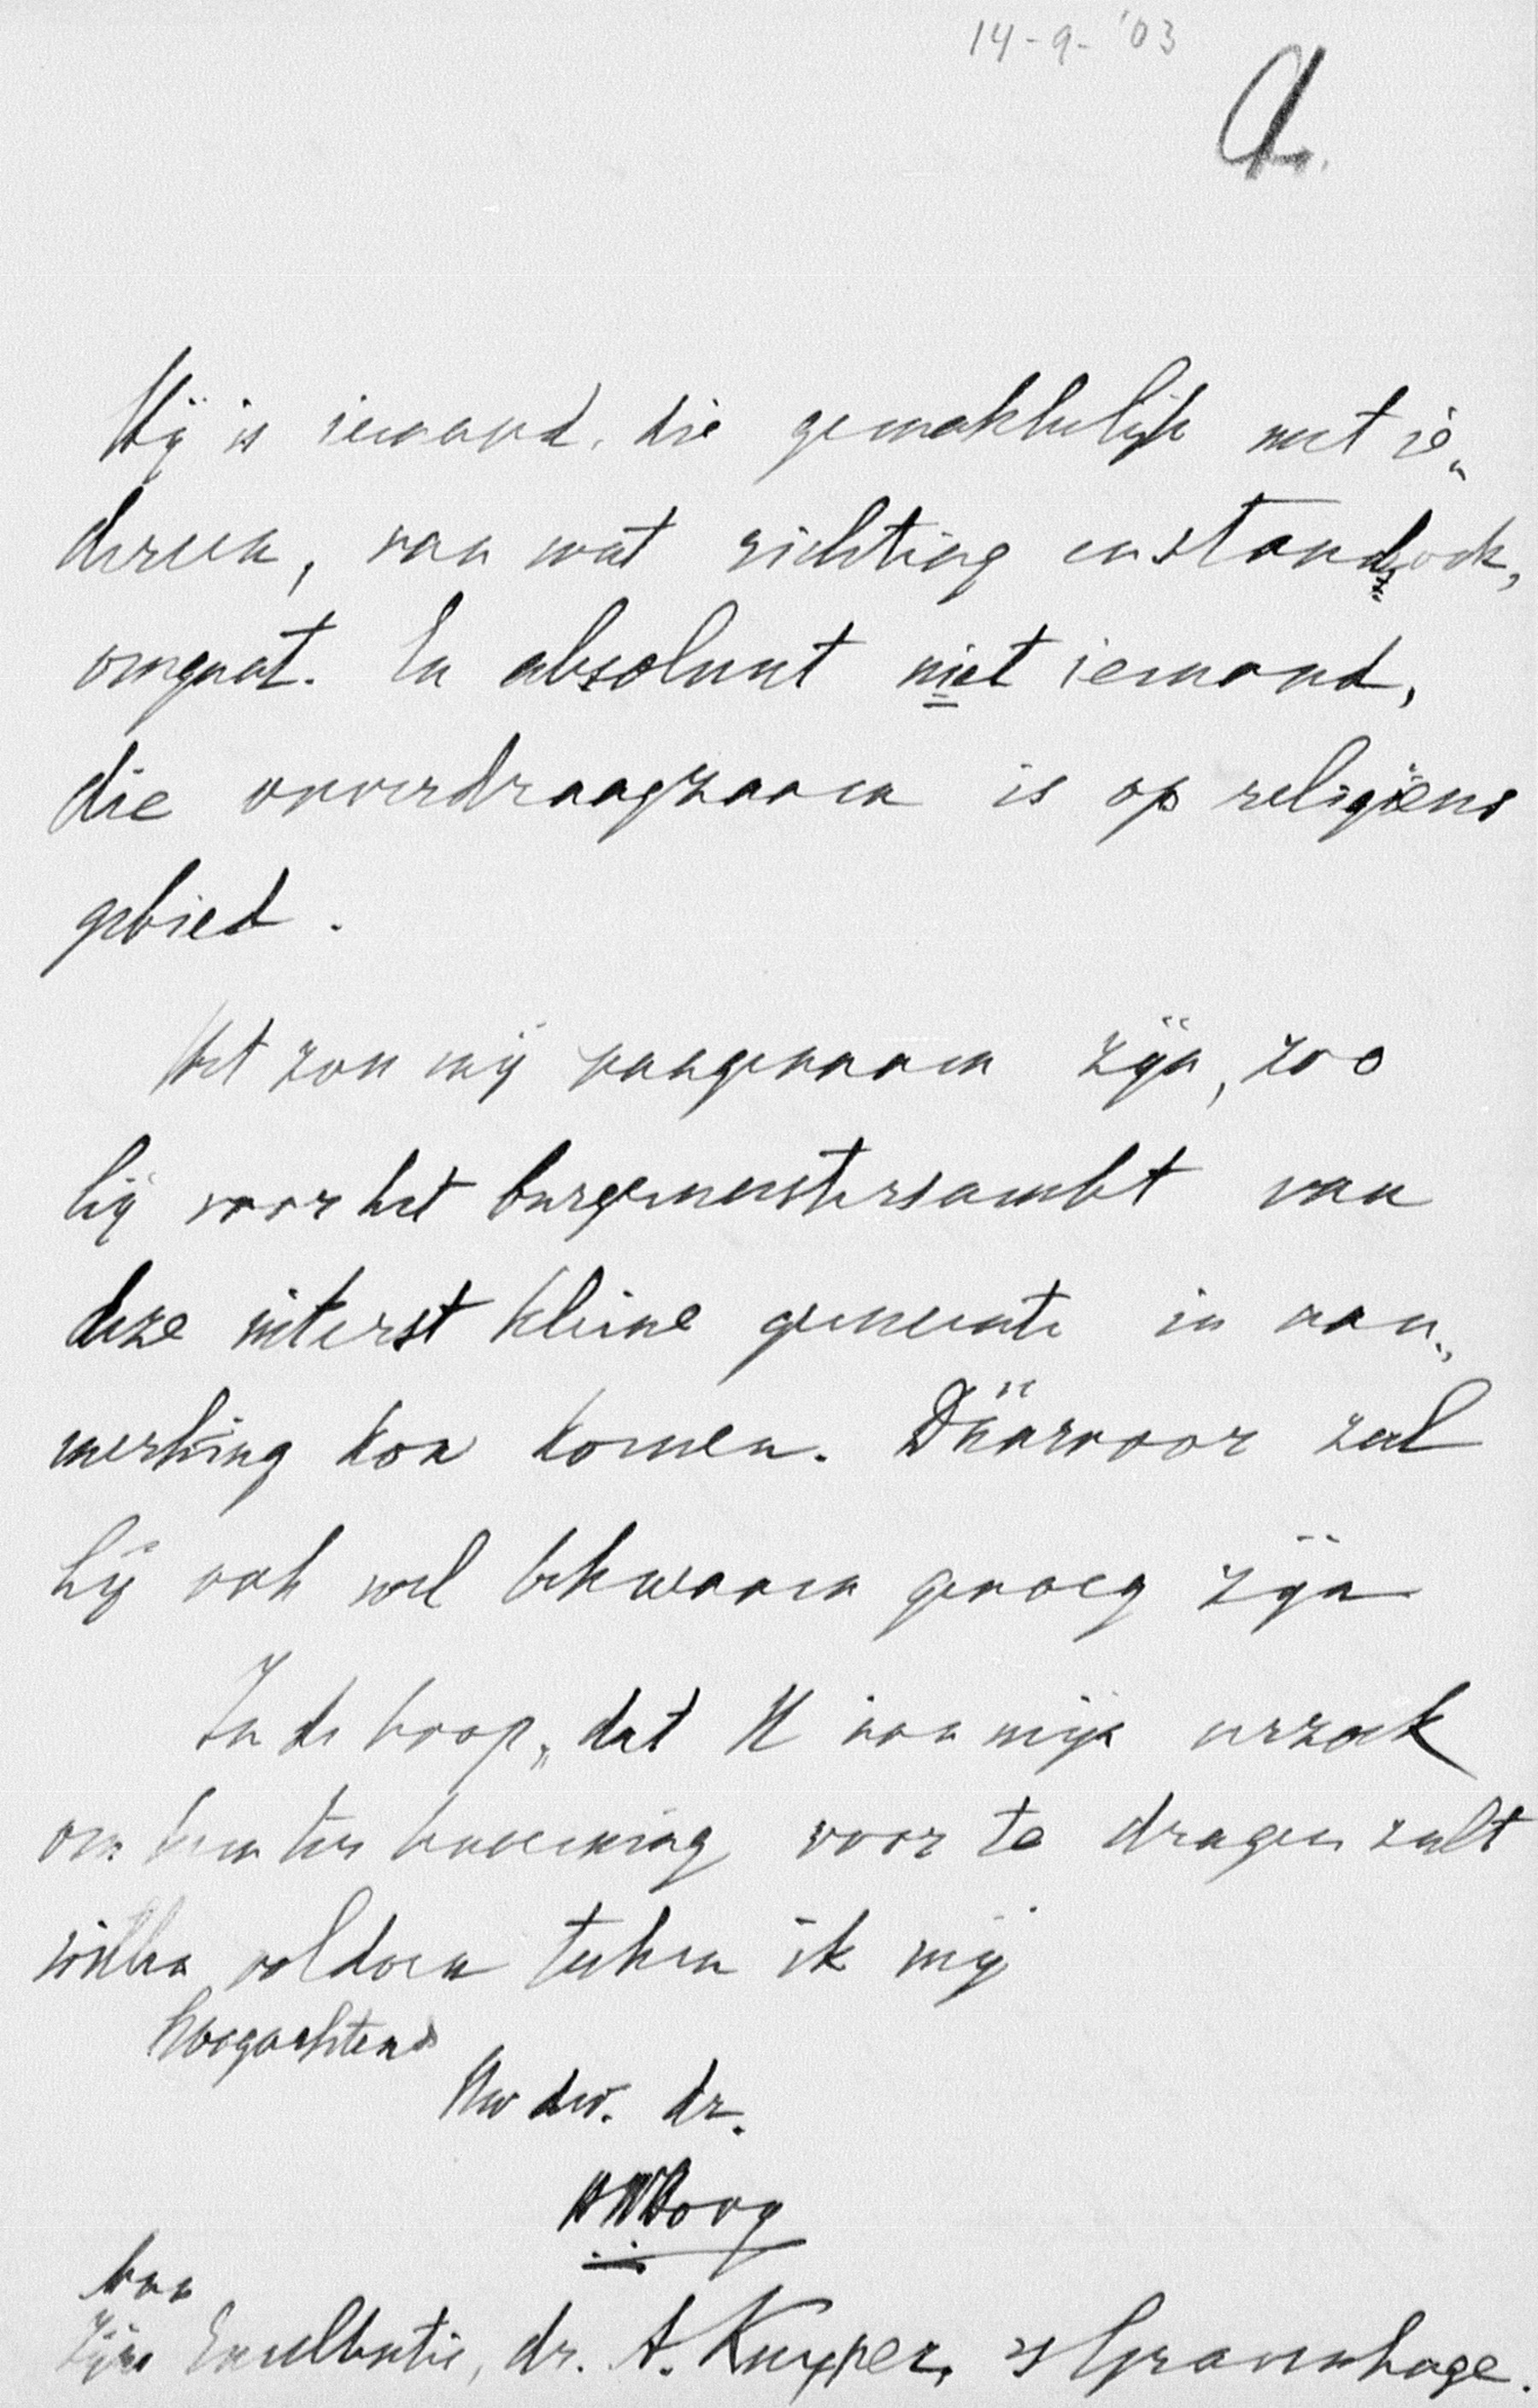 14-9-'03
Hij is iemand, die gemakkelijk met ie„
dereen, van wat richting en stand ook,
omgaat. En absoluut niet iemand,
die onverdraagzaam is op religieus
gebied.
Het zou mij aangenaam zijn, zoo
hij voor het burgemeestersambt van
deze uiterst kleine gemeente in aan„
merking kon komen. Däärvoor zal
hij ook wel bekwaam genoeg zijn
In de hoop, dat U aan mijn verzoek
om hem ter benoeming voor te dragen zult
willen voldoen teken ik mij
Hoogachtend
Uw dw. dr.
Hoog
Aan
Zijne Excellentie, dr. A. Kuyper, 's Gravenhage.